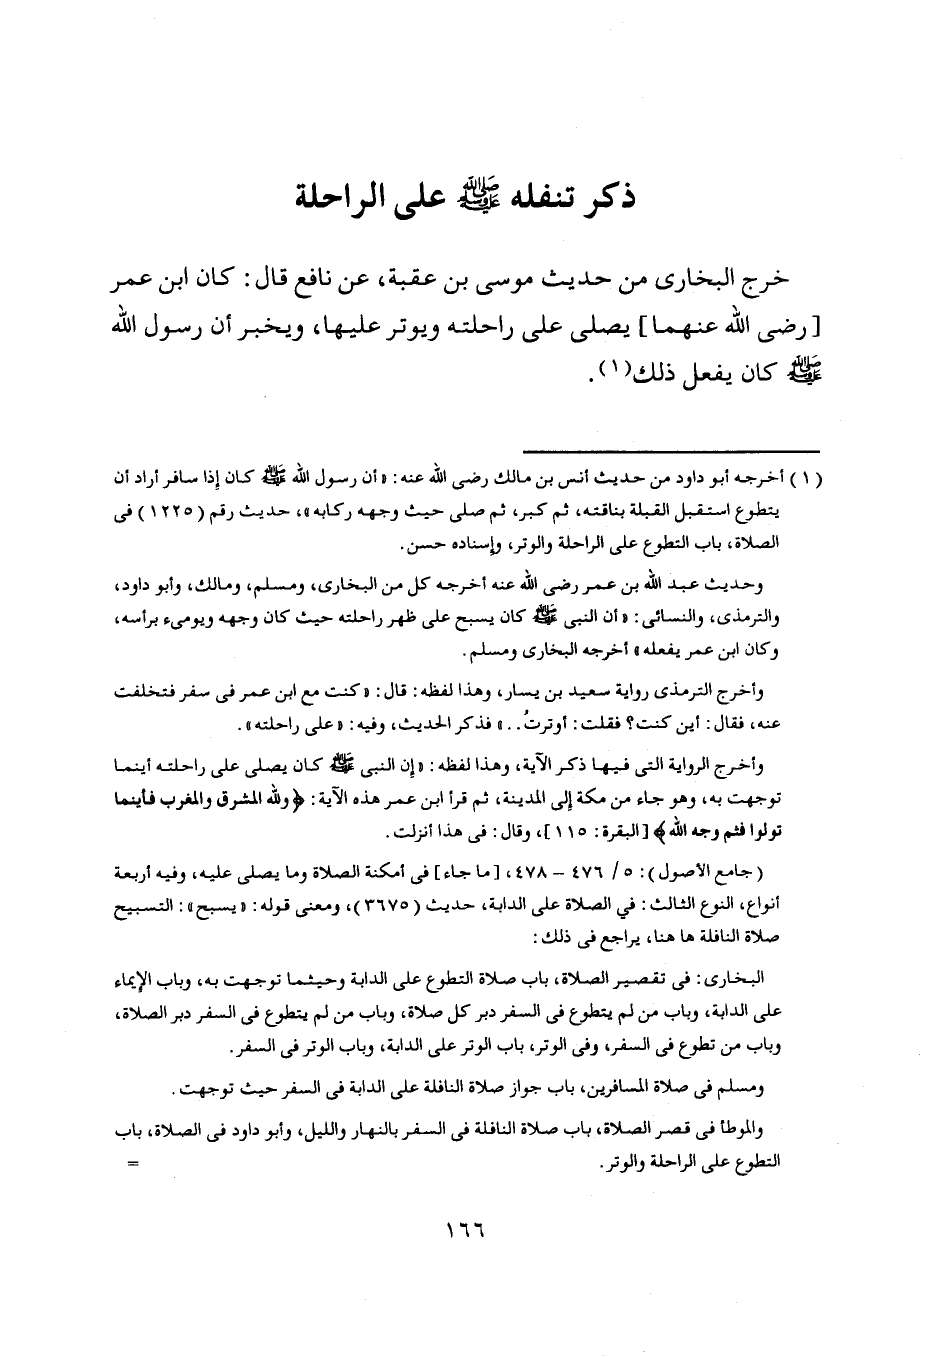 ذكر تنفله ﷺ على الراحلة
خرج البخارى من حديث موسى بن عقبة، عن نافع قال: كان ابن عمر
[رضى الله عنهما] يصلى على راحلته ويوتر عليها، ويخبر أن رسول الله
ﷺ كان يفعل ذلك(١).
(١) أخرجه أبو داود من حديث أنس بن مالك رضى الله عنه: «أن رسول الله ﷺ كان إذا سافر أراد أن
يتطوع استقبل القبلة بناقته، ثم كبر، ثم صلى حيث وجهه ركابه»، حديث رقم (١٢٢٥) فى
الصلاة، باب التطوع على الراحلة والوتر، وإسناده حسن.
وحديث عبد الله بن عمر رضى الله عنه أخرجه كل من البخارى، ومسلم، ومالك، وأبو داود،
والترمذى، والنسائى: «أن النبى ﷺ كان يسبح على ظهر راحلته حيث كان وجهه ويومىء برأسه،
وكان ابن عمر يفعله» أخرجه البخارى ومسلم.
وأخرج الترمذى رواية سعيد بن يسار، وهذا لفظه: قال: «كنت مع ابن عمر فى سفر فتخلفت
عنه، فقال: أين كنت؟ فقلت: أوترتُ..» فذكر الحديث، وفيه: «على راحلته».
وأخرج الرواية التى فيها ذكر الآية، وهذا لفظه: «إن النبى ﷺ كان يصلى على راحلته أينما
توجهت به، وهو جاء من مكة إلى المدينة، ثم قرأ ابن عمر هذه الآية: ﴿ولله المشرق والمغرب فأينما
تولوا فثم وجه الله﴾ [البقرة: ١١٥]، وقال: فى هذا أنزلت.
(جامع الأصول): ٥/ ٤٧٦ – ٤٧٨، [ما جاء] فى أمكنة الصلاة وما يصلى عليه، وفيه أربعة
أنواع، النوع الثالث: في الصلاة على الدابة، حديث (٣٦٧٥)، ومعنى قوله: «يسبح»: التسبيح
صلاة النافلة ها هنا، يراجع فى ذلك:
البخارى: فى تقصير الصلاة، باب صلاة التطوع على الدابة وحيثما توجهت به، وباب الإيماء
على الدابة، وباب من لم يتطوع فى السفر دبر كل صلاة، وباب من لم يتطوع فى السفر دبر الصلاة،
وباب من تطوع فى السفر، وفى الوتر، باب الوتر على الدابة، وباب الوتر فى السفر.
ومسلم فى صلاة المسافرين، باب جواز صلاة النافلة على الدابة فى السفر حيث توجهت.
والموطأ فى قصر الصلاة، باب صلاة النافلة فى السفر بالنهار والليل، وأبو داود فى الصلاة، باب
التطوع على الراحلة والوتر. =
١٦٦